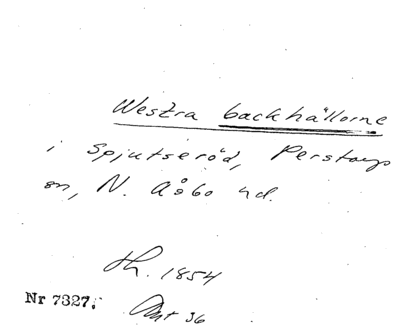 Westra backhällorne
i Spjutseröd, Perstorps
sn, N. Åsbo hd.
Lh. 1854
Nr 7327.